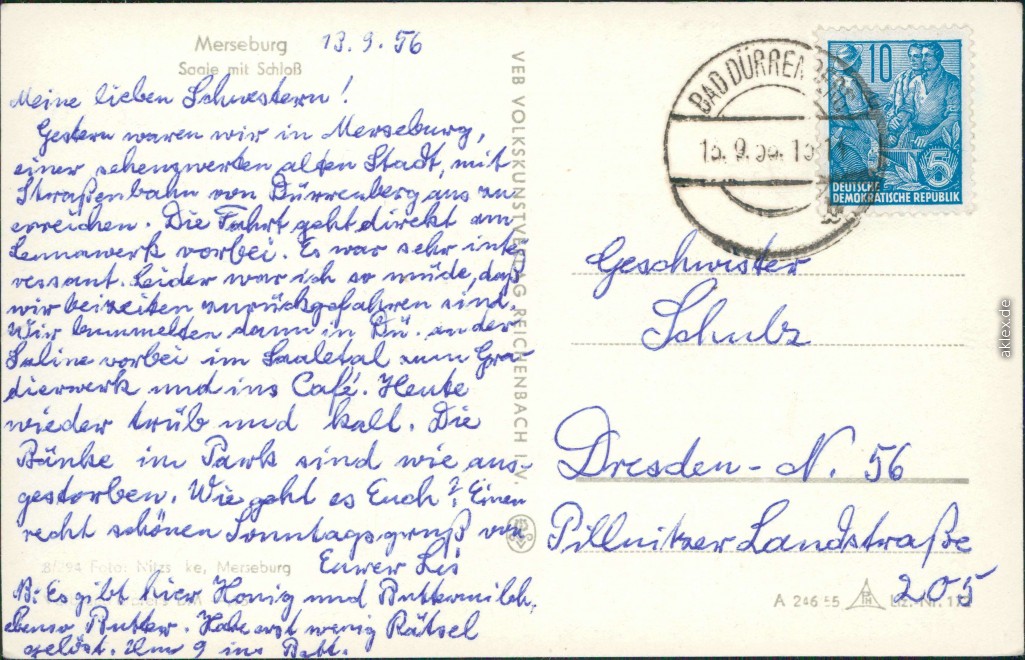 Merseburg 13.9.56
Saale mit Schloß
Meine lieben Schwestern!
Gestern waren wir in Merseburg,
einer sehenswerten alten Stadt, mit
Straßenbahn von Dürrenberg aus zu
erreichen. Die Fahrt geht direkt am
Leunawerk vorbei. Es war sehr inte-
ressant. Leider war ich so müde, daß
wir beizeiten zurückgefahren sind.
Wir bummelten dann in Dü. an der
Saline vorbei im Saaletal zum Gra-
dierwerk und ins Café. Heute
wieder trüb und kalt. Die
Bänke im Park sind wie aus-
gestorben. Wie geht es Euch? Einen
recht schönen Sonntagsgruß von
Eurer Lis
Foto: Nitzs ke, Merseburg
B: Es gibt hier Honig und Buttermilch,
ebenso Butter. Habe erst wenig Rätsel
gelöst. Um 9 ins Bett.
VEB VOLKSKUNSTVERLAG REICHENBACH I. V.
BAD DÜRRENBERG
13.9.56.
10
5
DEUTSCHE
DEMOKRATISCHE REPUBLIK
Geschwister
Schulz
Dresden-N. 56
Pillnitzer Landstraße
205
A 246 55
Liz.-Nr.
aklex.de